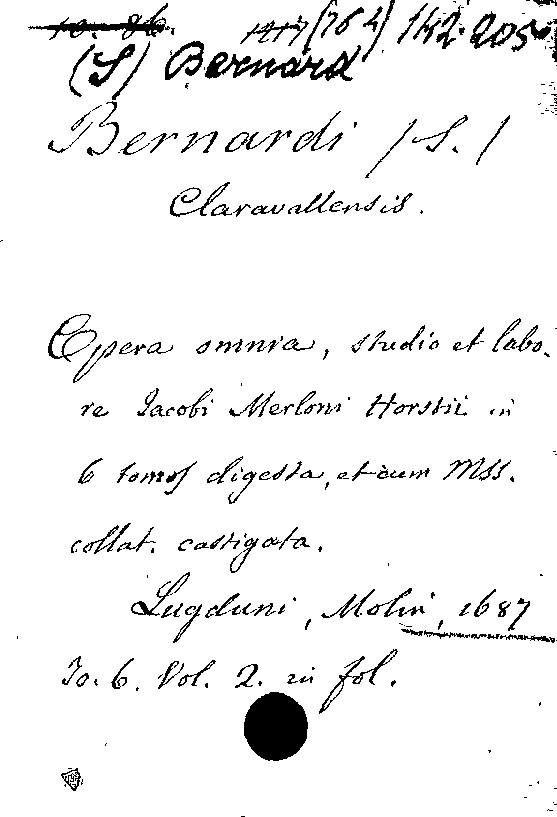 10. 86.
1417 (764) 142.205
(S) Bernard
Bernardi (S.)
Claravallensis.
Opera omnia, studio et labo-
re Jacobi Merloni Horstii in
6 tomos digesta, et cum MSS.
collat. castigata.
Lugduni, Molin, 1687
To. 6. Vol. 2. in fol.